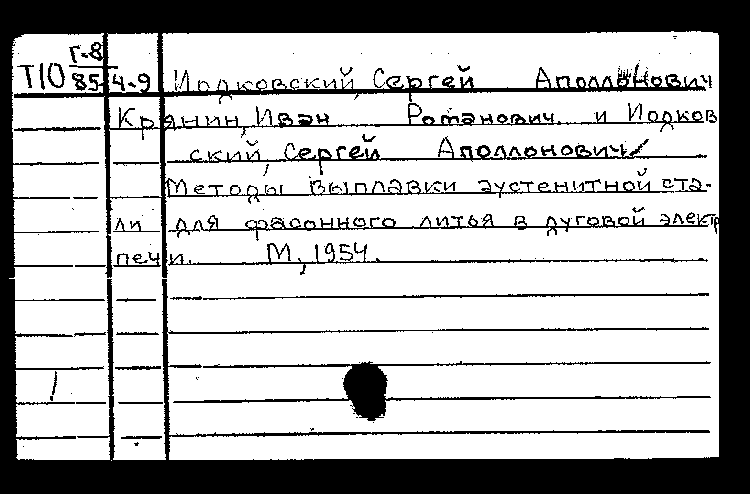 Г-8
Т10 85-4-9 Иодковский, Сергей Аполлонович
Крянин, Иван Романович и Иодков
ский, Сергей Аполлонович/
Методы выплавки аустенитной ста-
ли для фасонного литья в дуговой электр
печи. М, 1954.